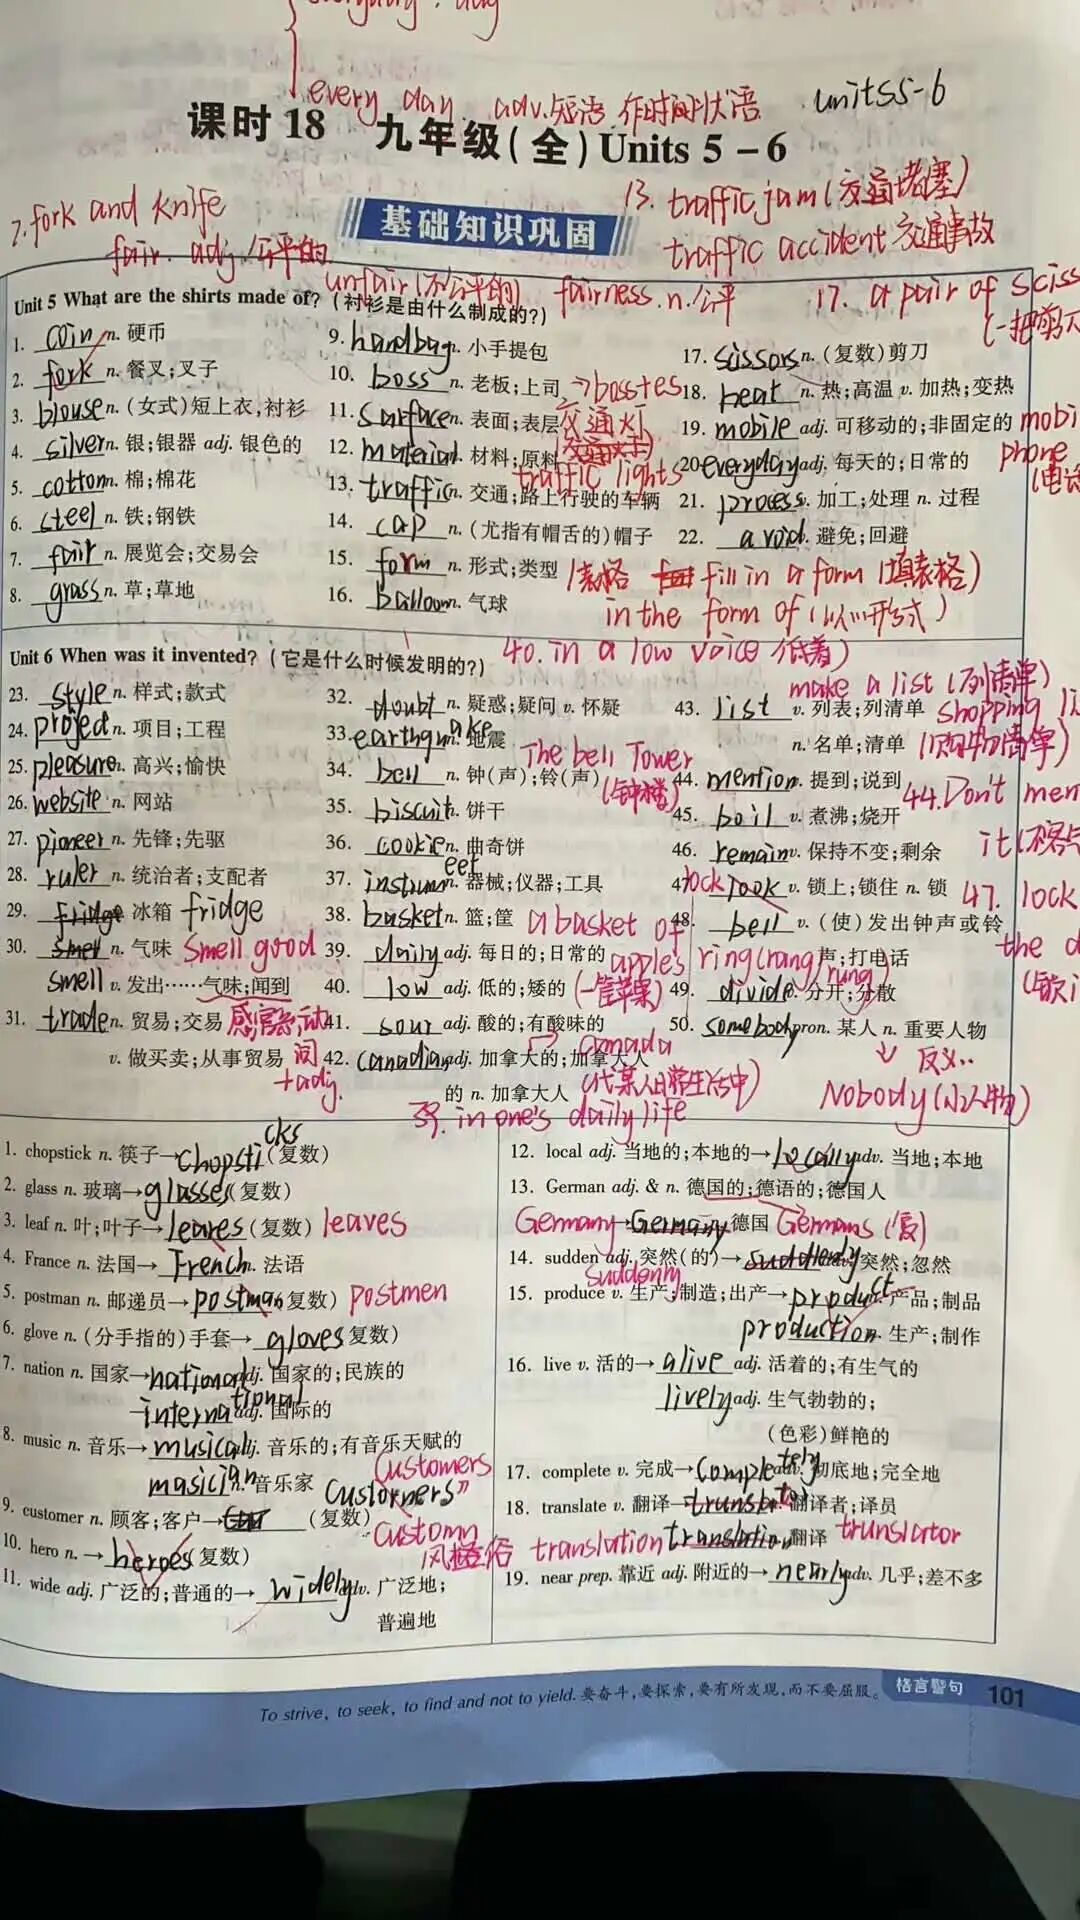 everyday. adj
every day. adv.短语 作时间状语 units5-6
课时 18 九年级(全)Units 5-6
2.fork and knife
13. traffic jam(交通堵塞)
基础知识巩固
traffic accident 交通事故
fair. adj.公平的
unfair(不公平的) fairness. n.公平
17. a pair of sciss
(一把剪刀
Unit 5 What are the shirts made of?(衬衫是由什么制成的?)
1. coin n. 硬币
2. fork n. 餐叉;叉子
3. blouse n. (女式)短上衣,衬衫
4. silver n. 银;银器 adj. 银色的
5. cotton n. 棉;棉花
6. steel n. 铁;钢铁
7. fair n. 展览会;交易会
8. grass n. 草;草地
9. handbag n. 小手提包
10. boss n. 老板;上司 →bosses
11. surface n. 表面;表层 交通灯
12. material n. 材料;原料
traffic lights
13. traffic n. 交通;路上行驶的车辆
14. cap n. (尤指有帽舌的)帽子
15. form n. 形式;类型 (表格 fill in a form (填表格)
in the form of (以…形式)
16. balloon n. 气球
17. scissors n. (复数)剪刀
18. heat n. 热;高温 v. 加热;变热
19. mobile adj. 可移动的;非固定的 mobi
phone
20. everyday adj. 每天的;日常的
21. process v. 加工;处理 n. 过程
22. avoid v. 避免;回避
Unit 6 When was it invented?(它是什么时候发明的?)
40. in a low voice 低着)
23. style n. 样式;款式
24. project n. 项目;工程
25. pleasure n. 高兴;愉快
26. website n. 网站
27. pioneer n. 先锋;先驱
28. ruler n. 统治者;支配者
29. fridge 冰箱 fridge
30. smell n. 气味 Smell good
smell v. 发出……气味;闻到
31. trade n. 贸易;交易 感官动词
v. 做买卖;从事贸易
+adj.
32. doubt n. 疑惑;疑问 v. 怀疑
33. earthquake n. 地震
The bell Tower
(钟楼)
34. bell n. 钟(声);铃(声)
35. biscuit n. 饼干
36. cookie n. 曲奇饼
37. instrumeet n. 器械;仪器;工具
38. basket n. 篮;筐 a basket of
apples
(一筐苹果)
39. daily adj. 每日的;日常的
40. low adj. 低的;矮的
41. sour adj. 酸的;有酸味的
canada
42. canadian adj. 加拿大的;加拿大人
的 n. 加拿大人
39. in one's daily life
make a list (列清单)
43. list v. 列表;列清单 shopping li
n. 名单;清单 (购物清单)
44. mention v. 提到;说到
44.Don't men
45. boil v. 煮沸;烧开
46. remain v. 保持不变;剩余
47. look v. 锁上;锁住 n. 锁
lock
47. lock
48. bell v. (使)发出钟声或铃
声;打电话
ring(rang rung)
49. divide v. 分开;分散
50. somebody pron. 某人 n. 重要人物
反义..
Nobody(小人物)
1. chopstick n. 筷子→chopsticks(复数)
2. glass n. 玻璃→glasses(复数)
3. leaf n. 叶;叶子→leaves(复数) leaves
4. France n. 法国→French n. 法语
5. postman n. 邮递员→postman(复数) postmen
6. glove n. (分手指的)手套→gloves(复数)
7. nation n. 国家→national adj. 国家的;民族的
international adj. 国际的
8. music n. 音乐→musical adj. 音乐的;有音乐天赋的
masician n. 音乐家
9. customer n. 顾客;客户→ (复数)
customers
custom
10. hero n. →heroes(复数)
11. wide adj. 广泛的;普通的→widely adv. 广泛地;
普遍地
12. local adj. 当地的;本地的→locally adv. 当地;本地
13. German adj. & n. 德国的;德语的;德国人
Germany→Germany 德国 Germans (复)
14. sudden adj. 突然(的)→suddendy 突然;忽然
suddenly
15. produce v. 生产;制造;出产→product n. 产品;制品
production n. 生产;制作
16. live v. 活的→alive adj. 活着的;有生气的
lively adj. 生气勃勃的;
(色彩)鲜艳的
17. complete v. 完成→completely adv. 彻底地;完全地
18. translate v. 翻译→ 翻译者;译员
translation translation 翻译 translator
19. near prep. 靠近 adj. 附近的→nearly adv. 几乎;差不多
To strive, to seek, to find and not to yield. 要奋斗,要探索,要有所发现,而不要屈服。 格言警句 101